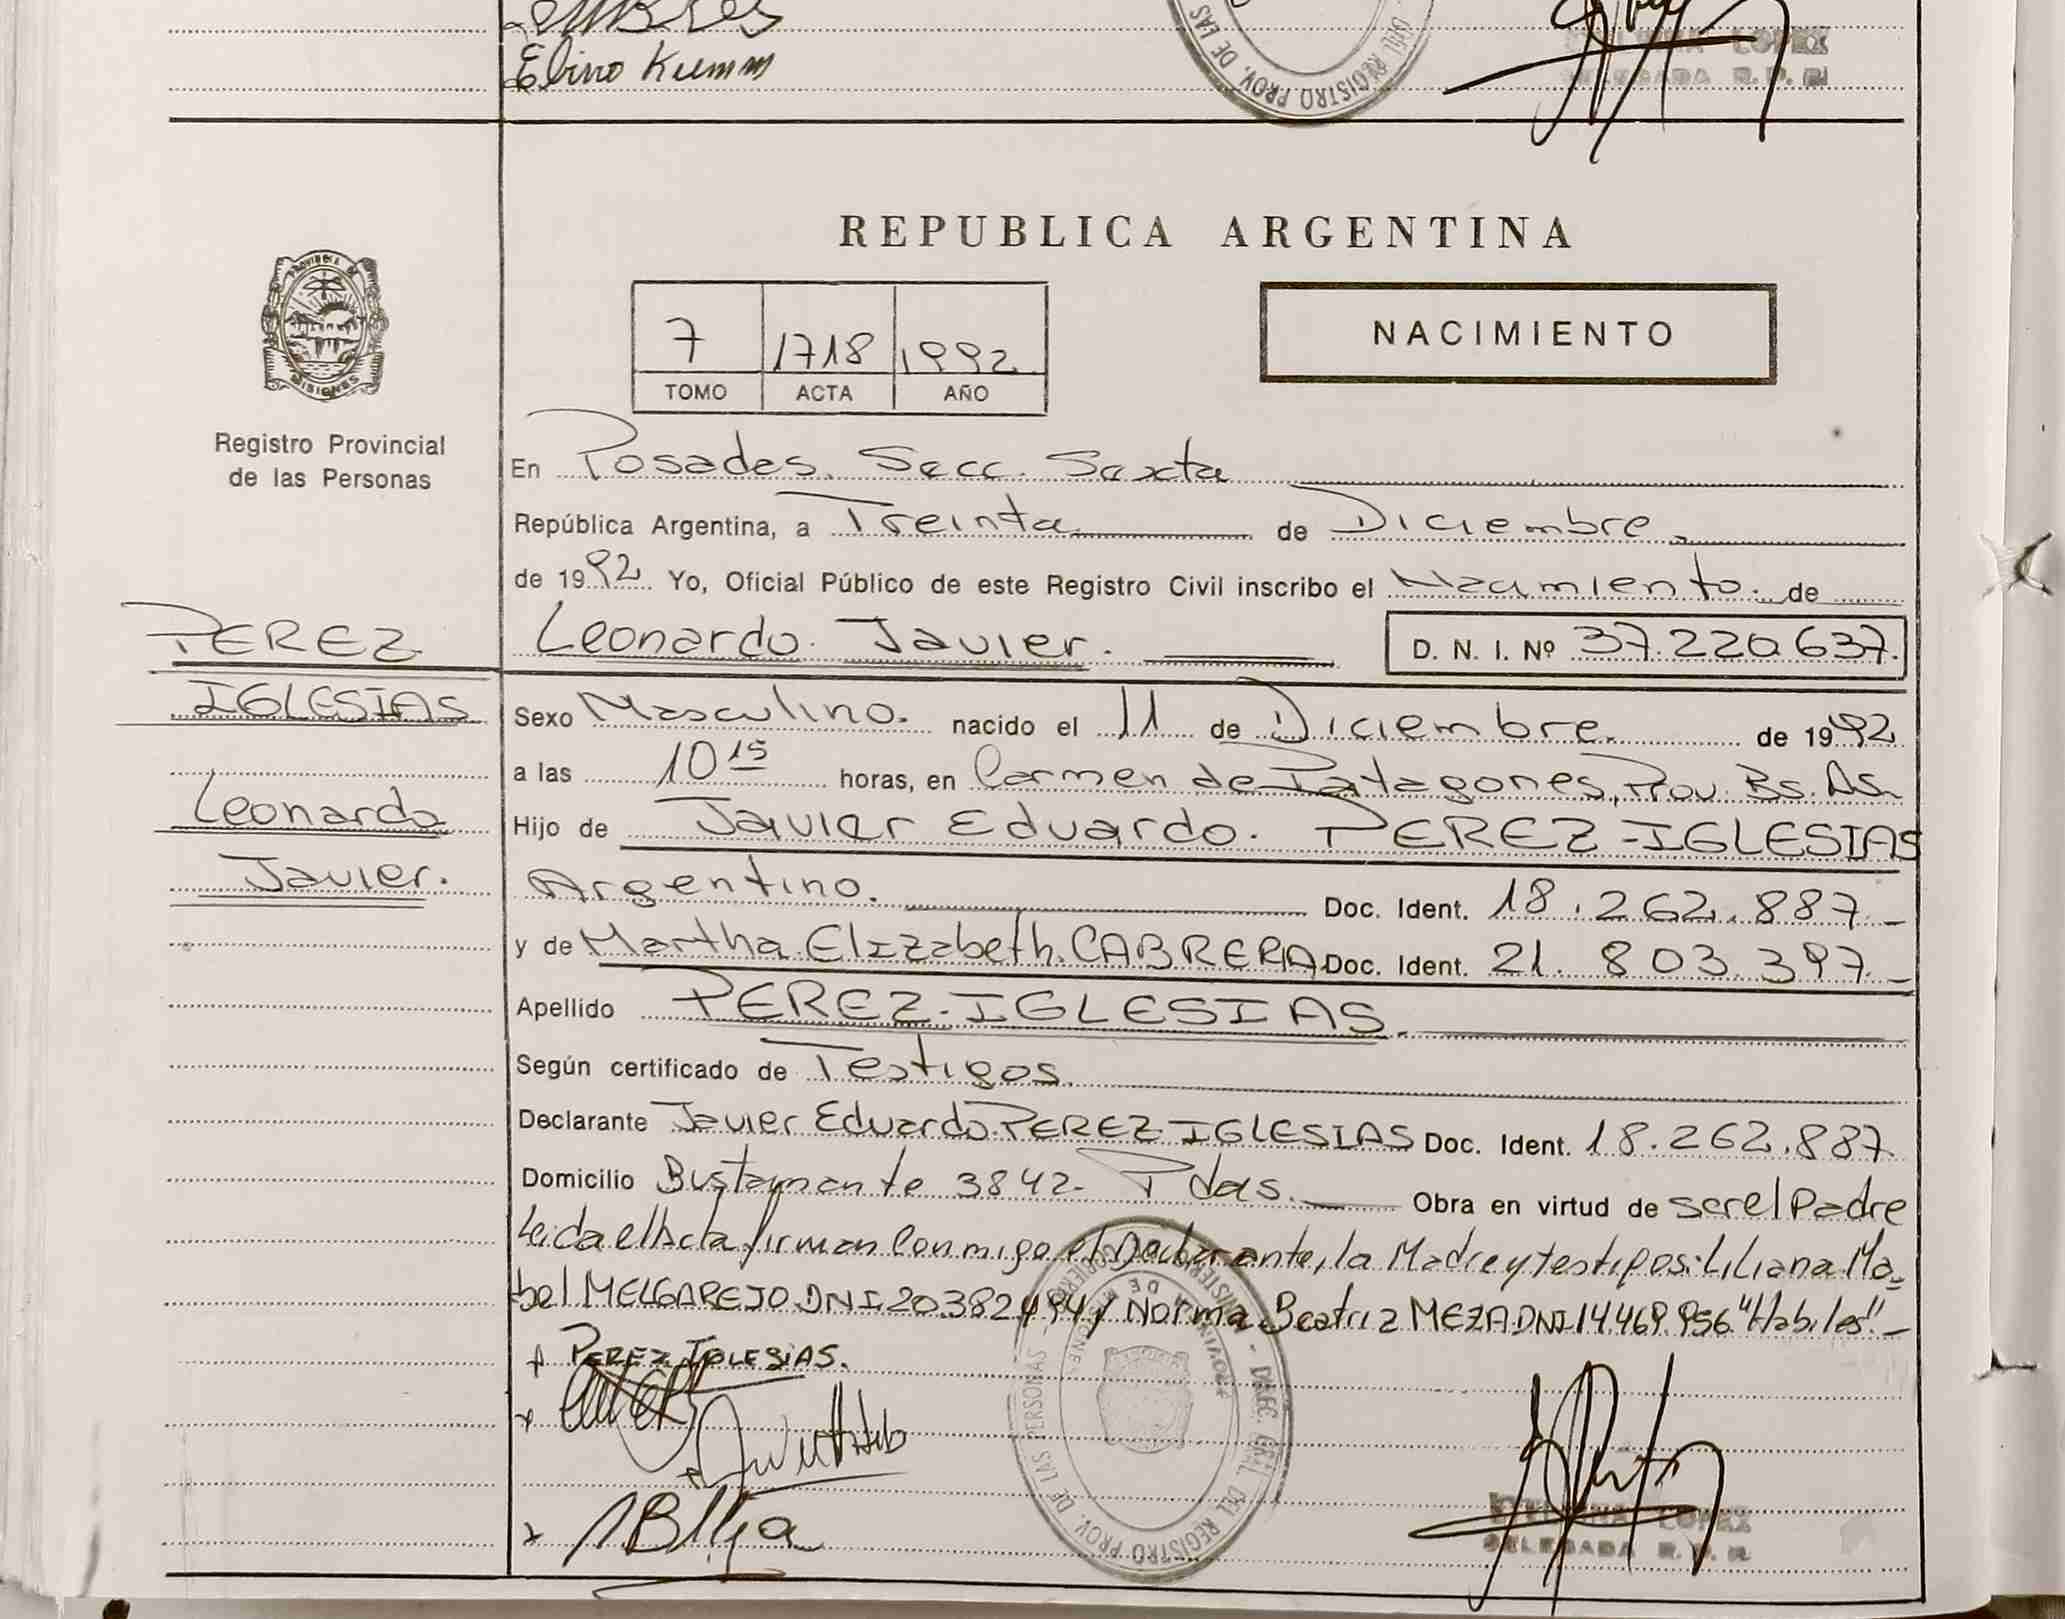 Elino Kumm
DEL REGISTRO PROV. DE LAS
LOPEZ
DELEGADA R. P. P.
REPUBLICA ARGENTINA
PROVINCIA DE
MISIONES
Registro Provincial
de las Personas
7 1718 1992
TOMO ACTA AÑO
NACIMIENTO
En Posadas. Secc. Sexta
República Argentina, a Treinta de Diciembre
de 1992 Yo, Oficial Público de este Registro Civil inscribo el Nacimiento de
Leonardo Javier. D. N. I. Nº 37.220.637.
PEREZ
IGLESIAS
Leonardo
Javier.
Sexo Masculino. nacido el 11 de Diciembre. de 1992
a las 10 15 horas, en Carmen de Patagones, Prov. Bs. As.
Hijo de Javier Eduardo. PEREZ-IGLESIAS
Argentino. Doc. Ident. 18.262.887-
y de Martha Elizabeth. CABRERA Doc. Ident. 21.803.397-
Apellido PEREZ-IGLESIAS.
Según certificado de Testigos.
Declarante Javier Eduardo PEREZ IGLESIAS Doc. Ident. 18.262.887
Domicilio Bustamante 3842- Pdas. Obra en virtud de ser el Padre
Leida el Acta firman conmigo el Declarante, la Madre y testigos: Liliana Ma=
bel MELGAREJO DNI 20382494 y Norma Beatriz MEZA DNI 14.469.956 "Habiles"-
PEREZ IGLESIAS.
DIREC. GRAL. DEL REGISTRO PROV. DE LAS PERSONAS - MINISTERIO DE GOBIERNO
PROVINCIA DE MISIONES
LOPEZ
DELEGADA R. P. P.